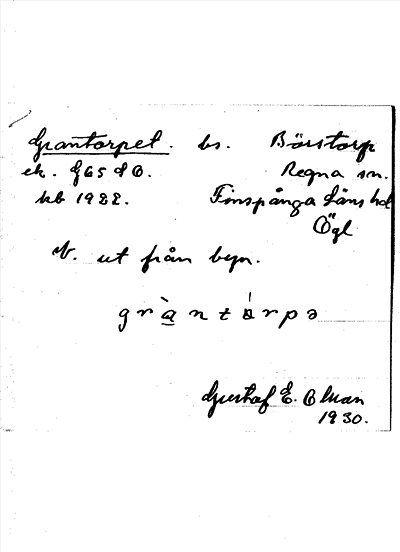 Grantorpet. bs. Börstorp
ek. G65 d0. Regna sn.
kb 1922. Finspånga Läns hd
Ögl
V. ut från byn.
gràntórpə
Gustaf E. Olman
1930.